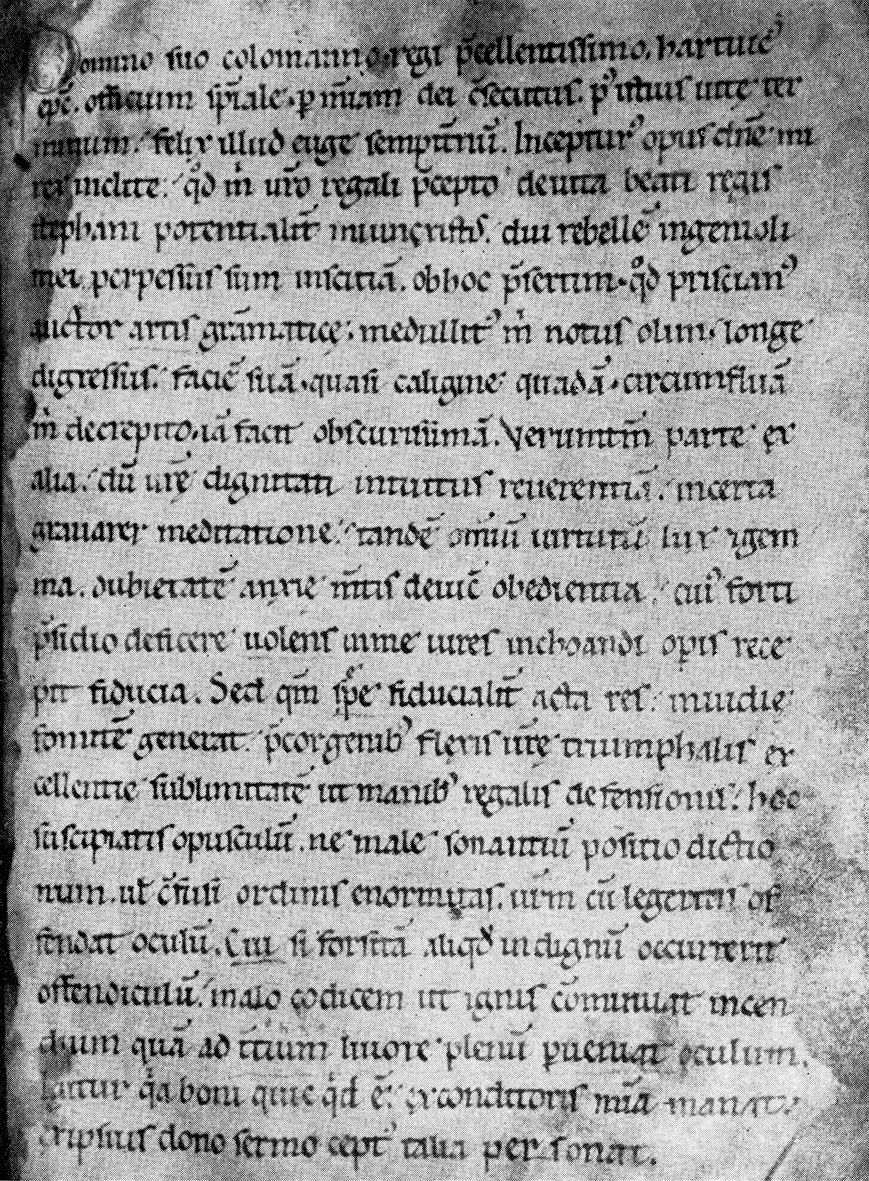 Domino suo colomanno regi p̄cellentissimo. hartuic᾽
ep̄c. officium sp̄iale. p̱ m̄iam dei c̄secutus. p᾽ istius uite ter
minum. felix illud euge sempit̄nū. Incepturꝰ opus dn̄e mi
rex inclite. qd̓ m̓ ur̄o regali p̄cepto de uita beati regis
stephani potentialit̄ iniunxistis. diu rebellē ingenioli
mei perpessus sum insciciā. ob hoc p̄sertim. qd̓ priscianꝰ
auctor artis grāmatice. medullitꝰ m̓ notus olim. longe
digressus. faciē suā. quasi caligine quadā. circumfluā
m̓ decrepito. iā facit obscurissimā. Verumtm̄ parte ex
alia. dū ur̄ę dignitati intuitus reuerentiā. incerta
grauarer meditatione. tandē om̄iū uirtutū lux ⁊ gem
ma. dubietatē anxie m̄tis deuic̄ obedientia. cuiꝰ forti
p̄sidio deficere uolens in me uires inchoandi opis rece
pit fiducia. Sed qm̄ sp̄e fiducialit̄ acta res. inuidię
fomitē generat. p̄cor genibꝰ flexis ur̄ę triumphalis ex
cellentie sublimitatē ut manibꝰ regalis defensionis. hoc
suscipiatis opusculū. ne male sonantiū positio dictio
num. ul̄ c̄fusi ordinis enormitas. ur̄m cū legeritis of
fendat oculū. Cui si forsitā aliqd̓ indignū occurrerit
offendiculū. malo codicem ut ignis cōminuat incen
dium quā ad t̄tium liuore plenū p̱ueniat oculum.
Igitur q̓a boni quic qd̓ ē. ex conditoris
et ipsius dono sermo cept̓ talia per sonat.